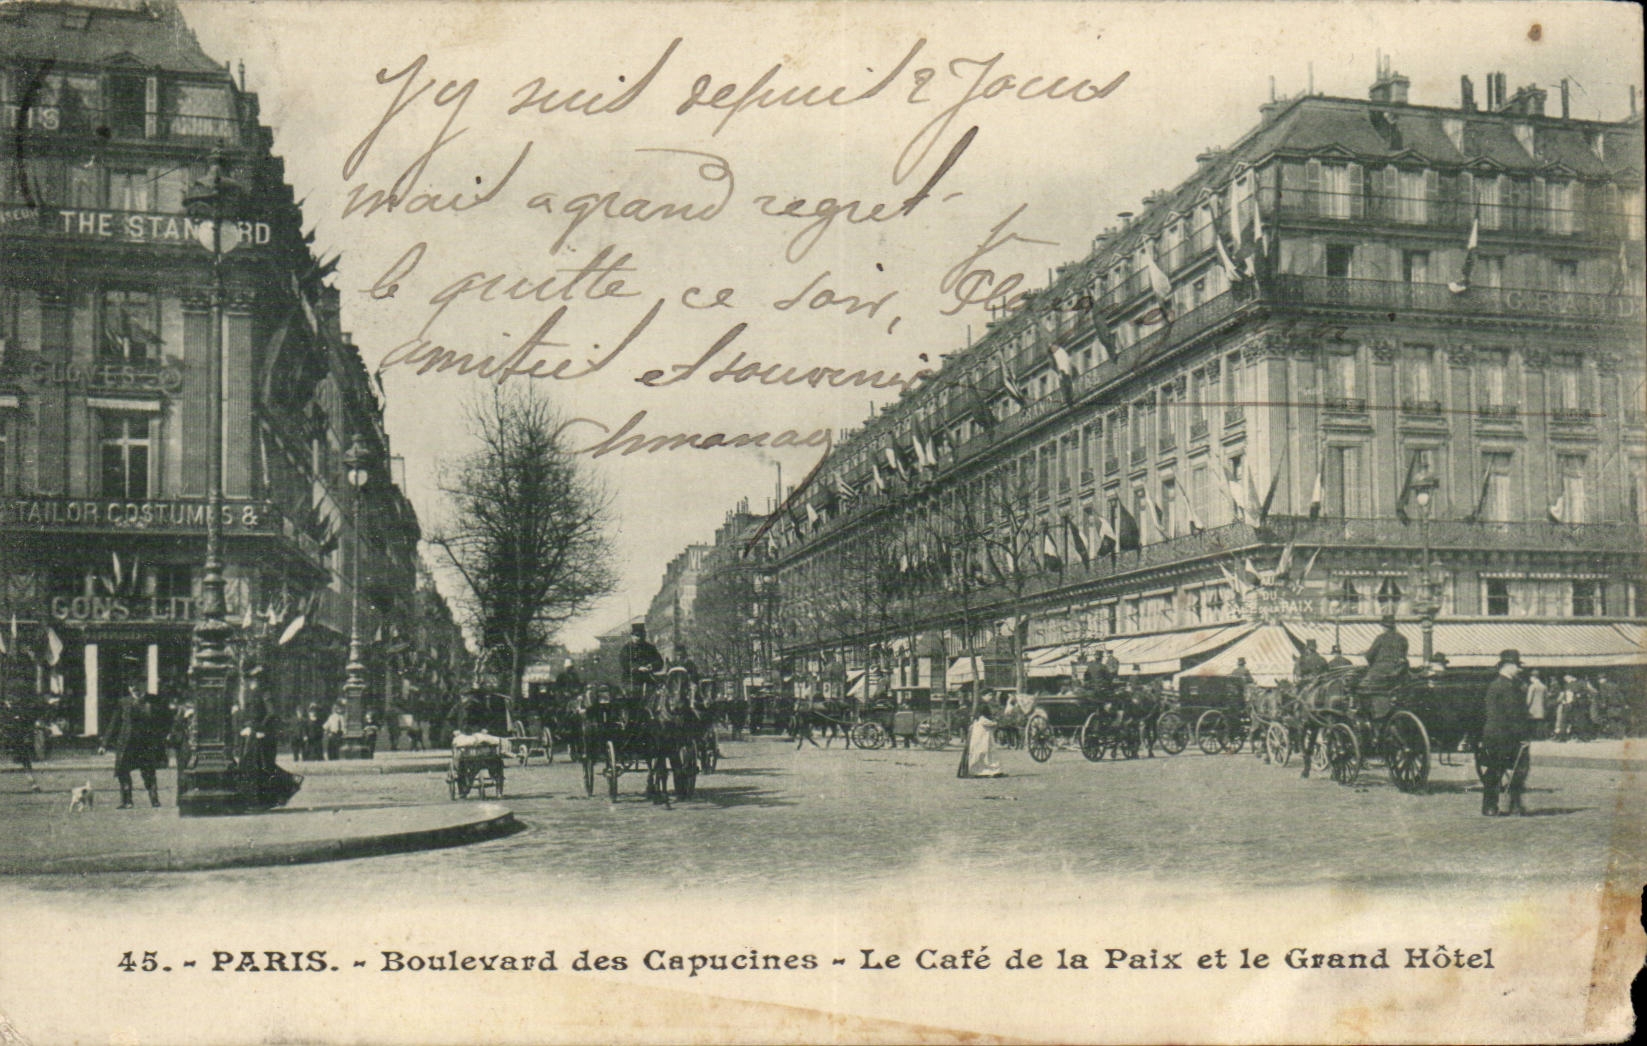 J'y suis depuis 2 Jours
mais a grand regret
le quitte ce soir,
amitiés et souvenirs
THE STAN RD
GLOVES
TAILOR COSTUMES &
GONS LIT
DU
CAFÉ DE LA PAIX
GRAND
45. - PARIS. - Boulevard des Capucines - Le Café de la Paix et le Grand Hôtel